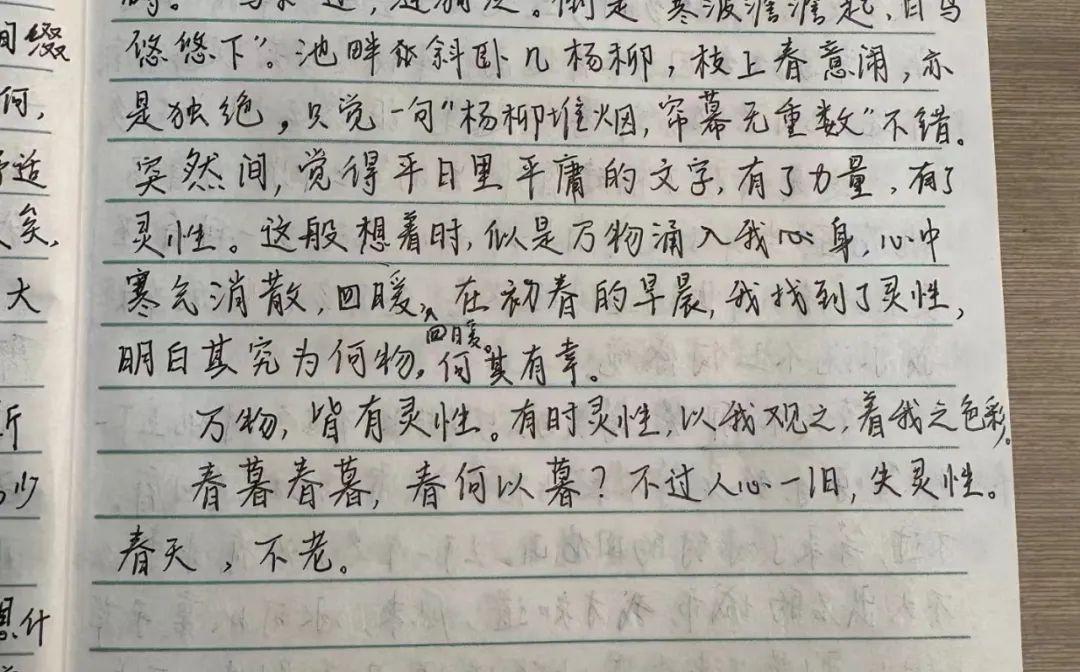 寒波澹澹起,白鸟
悠悠下”。池畔斜卧几杨柳,枝上春意闹,亦
是独绝,只觉一句“杨柳堆烟,帘幕无重数”不错。
突然间,觉得平日里平庸的文字,有了力量,有了
灵性。这般想着时,似是万物涌入我心身,心中
寒气消散,回暖,在初春的早晨,我找到了灵性,
回暖。
明白其究为何物。何其有幸。
万物,皆有灵性。有时灵性,以我观之,着我之色彩。
春暮春暮,春何以暮?不过人心一旧,失灵性。
春天,不老。
间缀
何,
适
矣,
大
斤
少
什